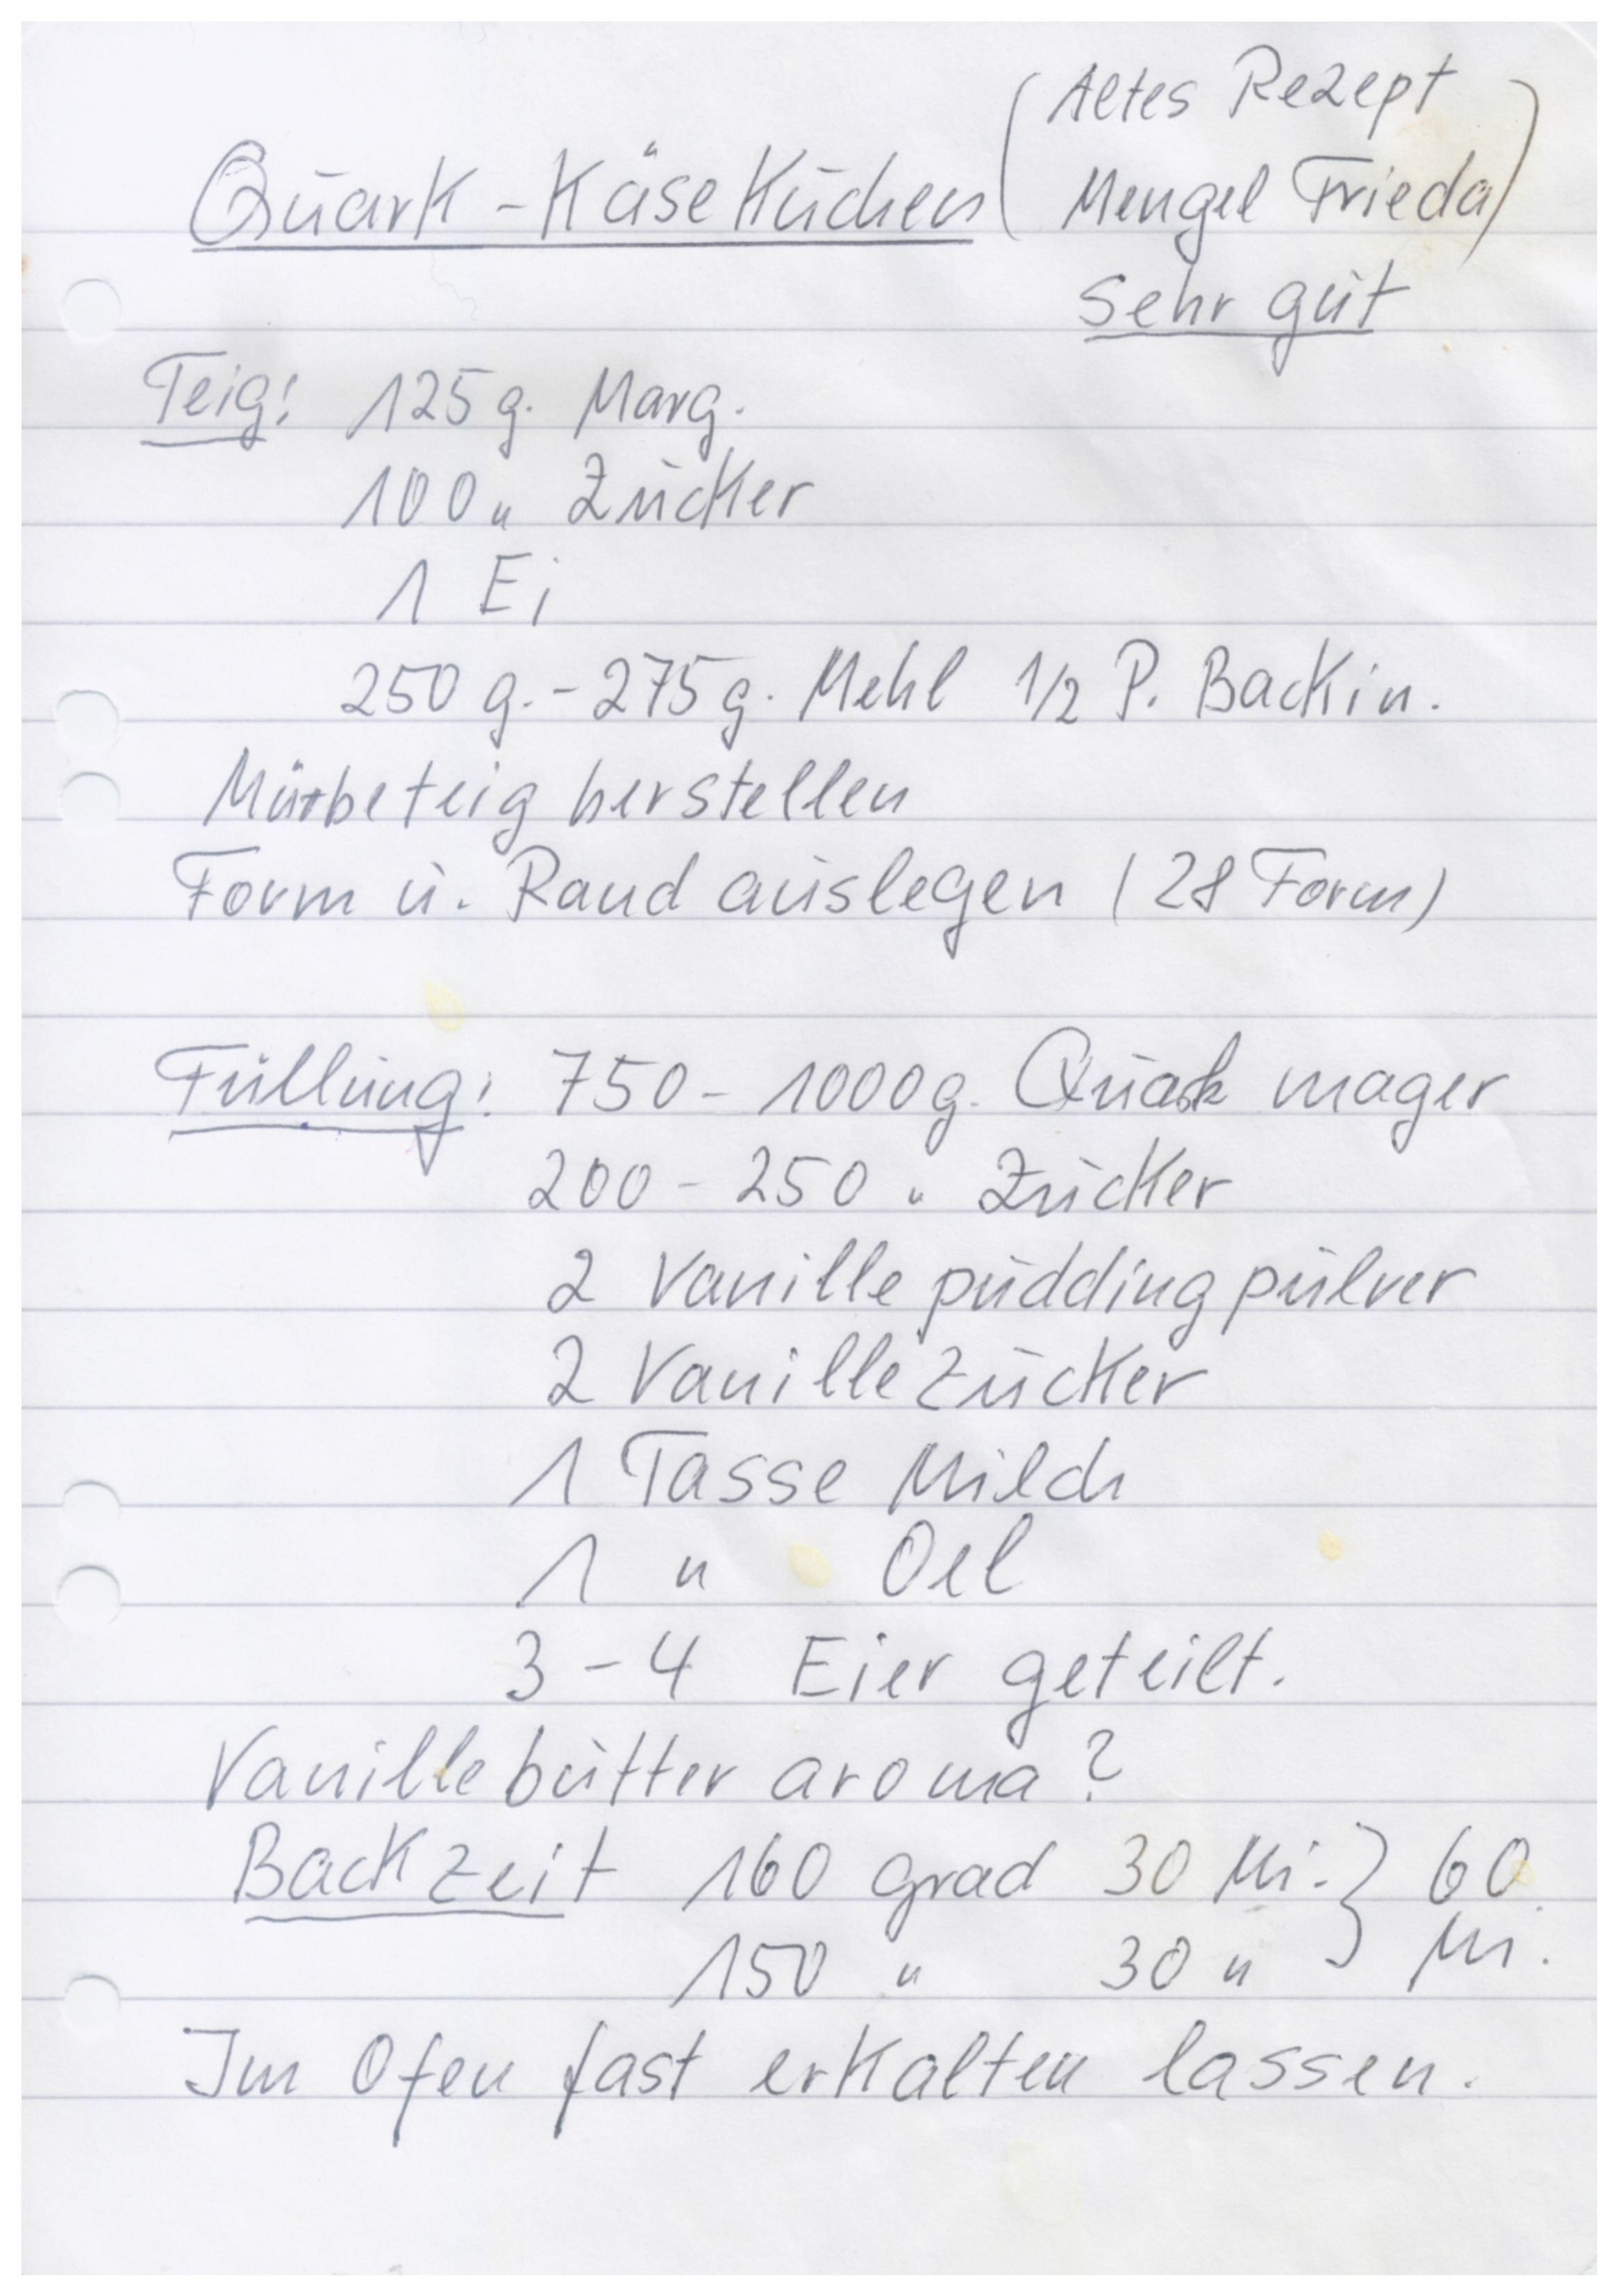 (Altes Rezept
Quark - Käsekuchen Mengel Frieda)
Sehr gut
Teig: 125 g. Marg.
100 " Zucker
1 Ei
250 g. - 275 g. Mehl 1/2 P. Backin.
Mürbeteig herstellen
Form u. Rand auslegen (28 Form)
Füllung: 750 - 1000 g. Quark mager
200 - 250 " Zucker
2 Vanille puddingpulver
2 Vanillezucker
1 Tasse Milch
1 " Oel
3 - 4 Eier geteilt.
Vanillebutter aroma?
Backzeit 160 grad 30 Mi. } 60
150 " 30 " } Mi.
Im Ofen fast erkalten lassen.